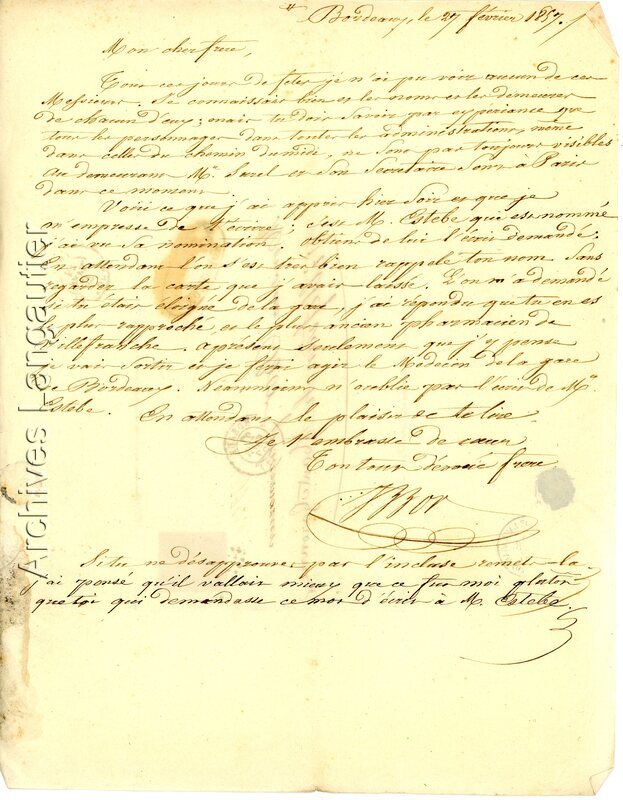 Bordeaux, le 27 février 1857.
Mon cher frère,
Tous ces jours de fêtes je n'ai pu voir aucun de ces
Messieurs. Je connaissais bien et les noms et les demeures
de chacun d'eux; mais tu dois savoir par expériance que
tous les personnages dans toutes les administrations, même
dans celles du chemin du midi, ne sont pas toujours visibles
Au demeurant Mr. Surel et son Secrétaire sont à Paris
dans ce moment.
Voici ce que j'ai appris hier soir et que je
m'empresse de t'écrire; c'est M. Estebe qui est nommé
j'ai vu sa nomination, obtiens de lui l'écrit demandé.
En attendant l'on s'est très bien rappelé ton nom sans
regarder la carte que j'avais laissé. L'on m'a demandé
si tu étais éloigné de la gare, j'ai répondu que tu en es
le plus rapproché et le plus ancien pharmacien de
Villefranche. à présent seulement que j'y pense
je vais sortir et je ferai agir le Médecin de la gare
de Bordeaux. Néanmoins n'oublie pas l'écrit de Mr.
Estebe.
En attendant le plaisir de te lire
Je t'embrasse de cœur
Ton tout dévoué frère
Si tu ne désapprouves pas l'incluse remet-la
j'ai pensé qu'il vallait mieux que ce fut moi plutôt
que toi qui demandasse ce mot d'écrit à M. Estebe.
Archives Langautier